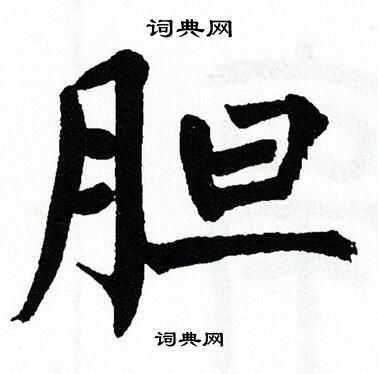 词典网
胆
词典网